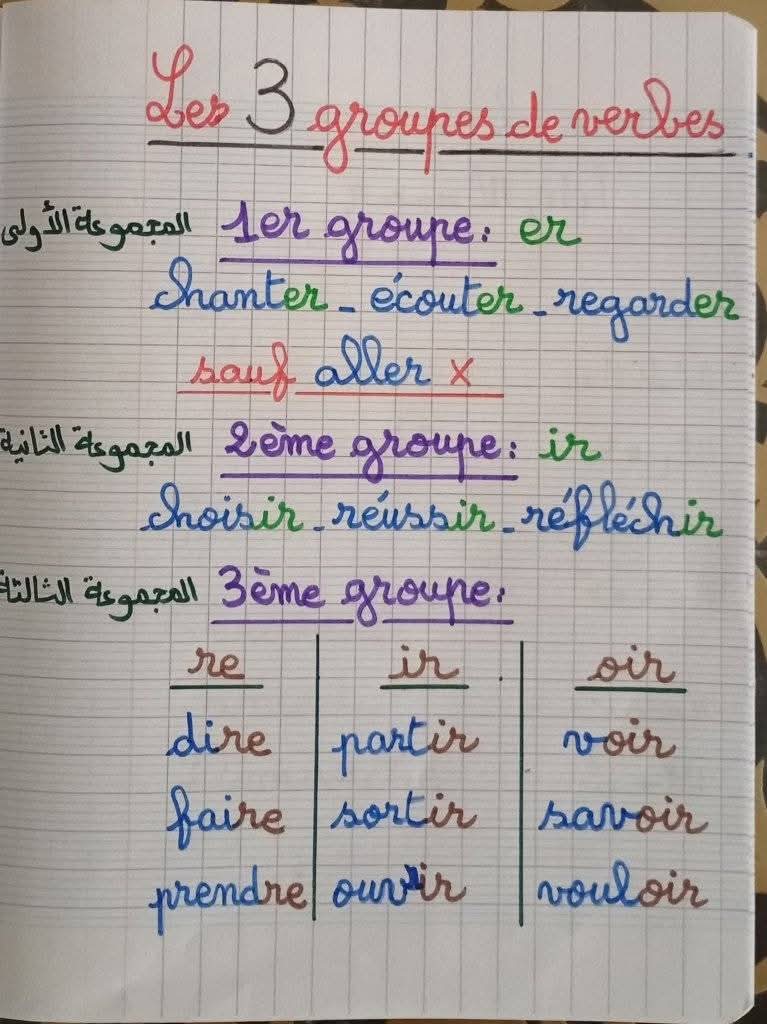 Les 3 groupes de verbes
المجموعة الأولى 1er groupe: er
chanter - écouter - regarder
sauf aller x
المجموعة الثانية 2ème groupe: ir
choisir - réussir - réfléchir
المجموعة الثالثة 3ème groupe:
re ir oir
dire partir voir
faire sortir savoir
prendre ouvrir vouloir